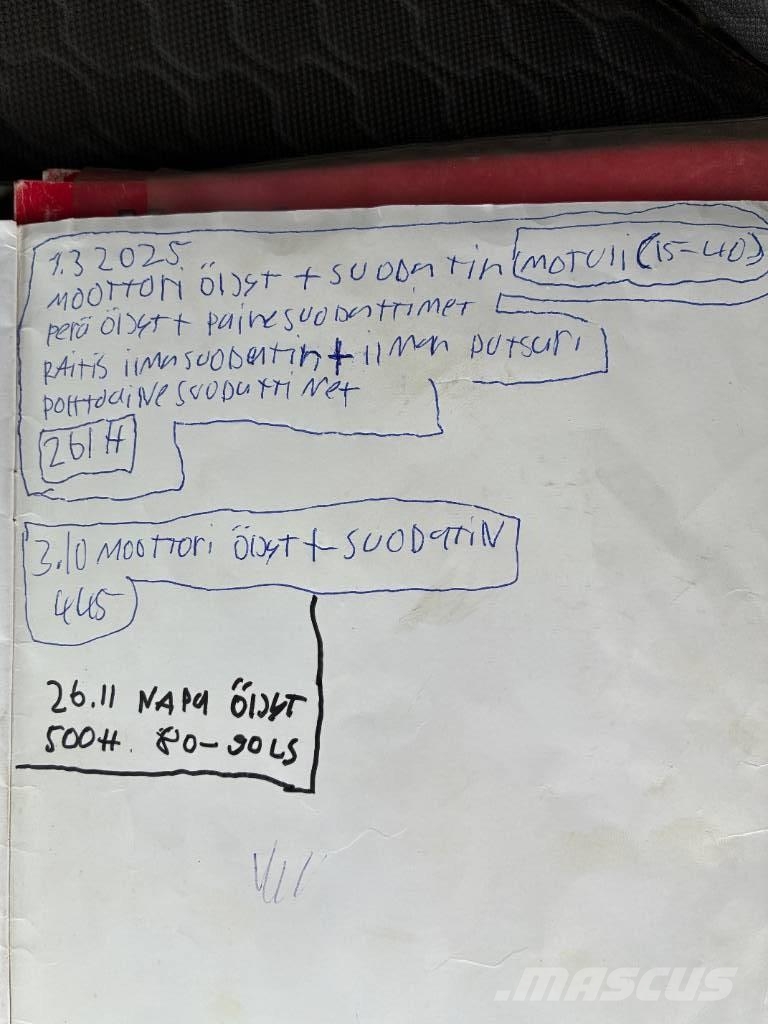 1.3 2025
MOOTTORI ÖLJYT + SUODATIN (MOTULI (15-40)
perä ÖLJYT + paine SUODATTIMET
RAITIS ilmaSUODATIN + ilman putsari
POLTTOAINE SUODATTIMET
261 H
3.10 MOOTTORI ÖLJYT + SUODATIN
445
26.11 NAPA ÖLJYT
500H. 80-90 LS
MASCUS